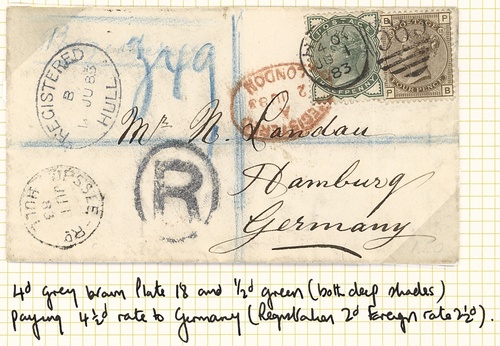 REGISTERED HULL
B
JU 83
349
LONDON
REGISTERED
POSTAGE
FOUR PENCE
B P
P B
Mr N. Landau
Hamburg
Germany
R
HESSLE Rd HULL
JU 1
83
4d grey brown Plate 18 and ½d green (both deep shades)
paying 4½d rate to Germany (Registration 2d Foreign rate 2½d).